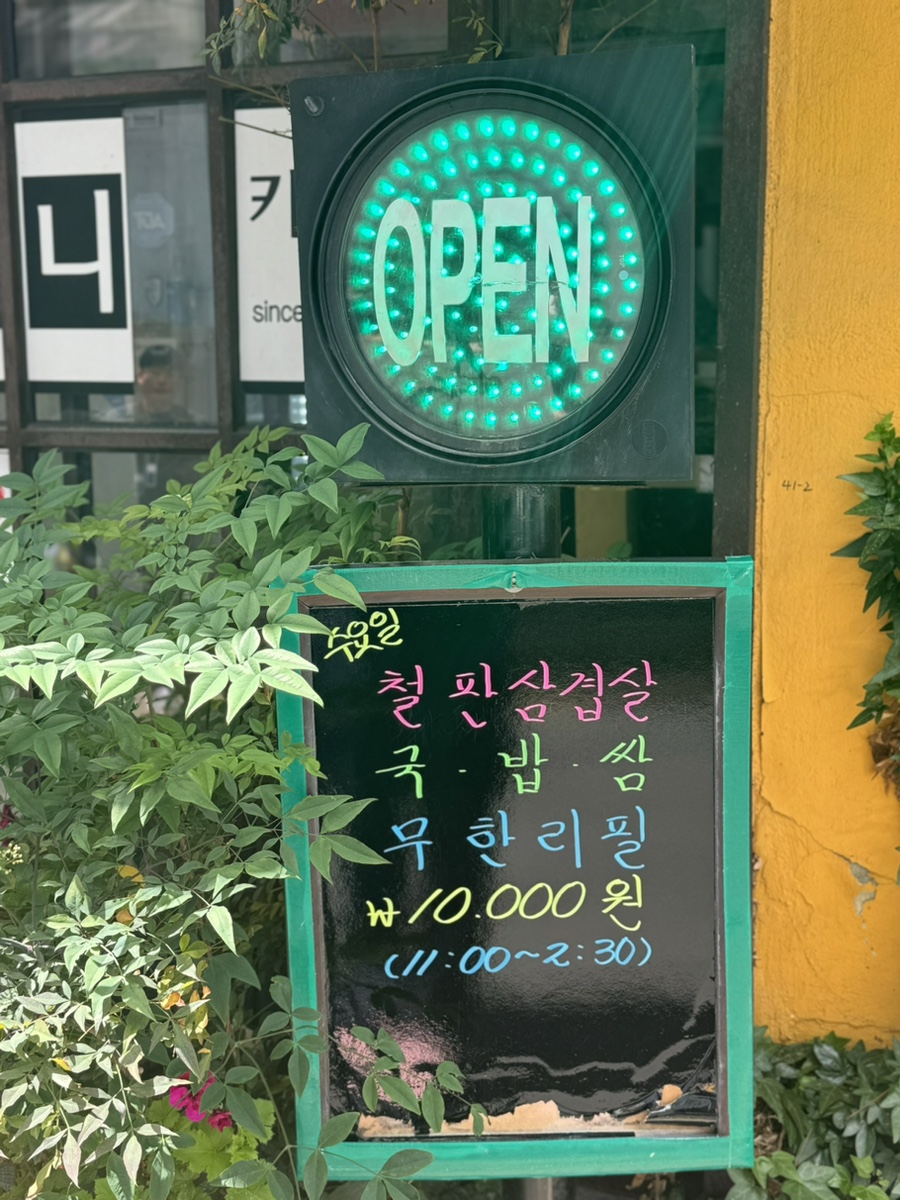 니
카
since
OPEN
41-2
수요일
철판삼겹살
국·밥·쌈
무한리필
₩10.000원
(11:00~2:30)